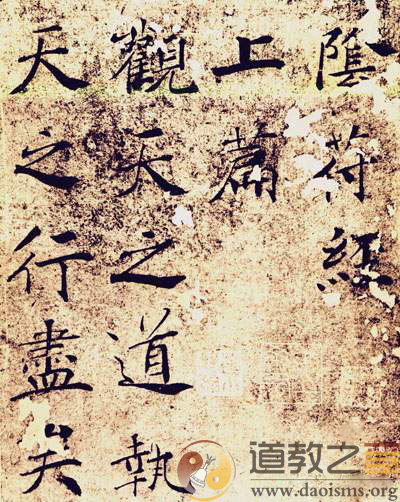 陰符經
上篇
觀天之道執
天之行盡矣
道教之音
www.daoisms.org